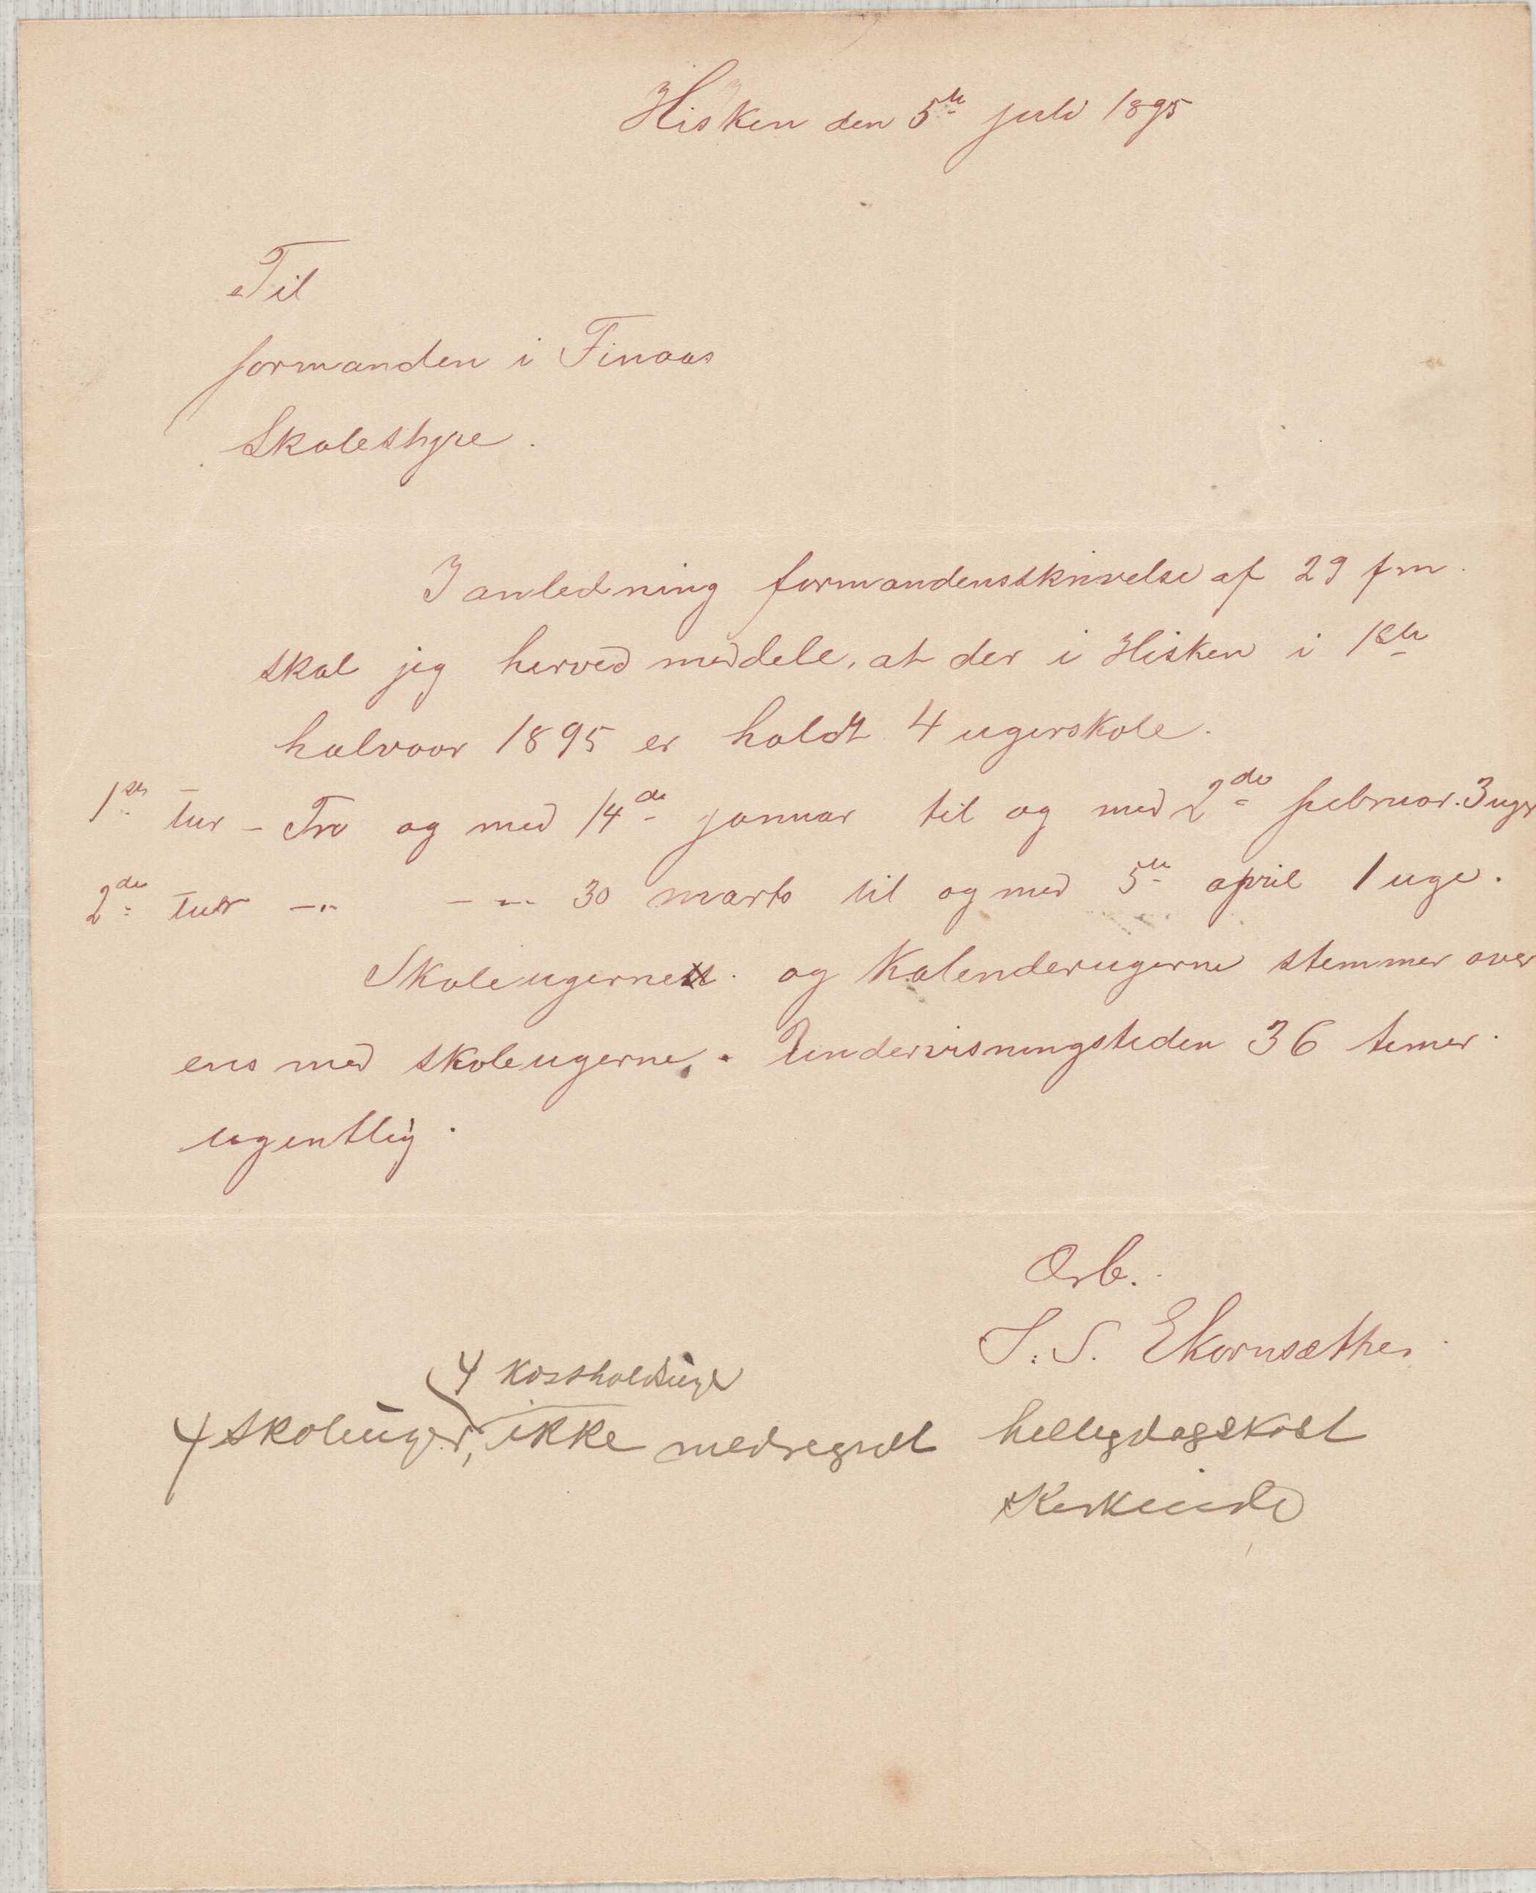 Hisken den 5te juli 1895
Til
formanden i Finaas
Skolestyre.
I anledning formandensskrivelse af 29 f m.
skal jeg herved meddele, at der i Hisken i 1ste
halvaar 1895 er holdt 4 ugerskole.
1ste Tur - Fra og med 14de januar til og med 2den februar. 3 uger
2den Tur -"- - -"- 30 marts til og med 5te april 1 uge.
Skoleugerne og Kalenderugerne stemmer over
ens med skoleugerne. Undervisningstiden 36 timer
ugentlig.
Ærb.
S. S. Ekornsæther
4 kostholdsuger
4 skoleuger, ikke medregnet helligdagskost